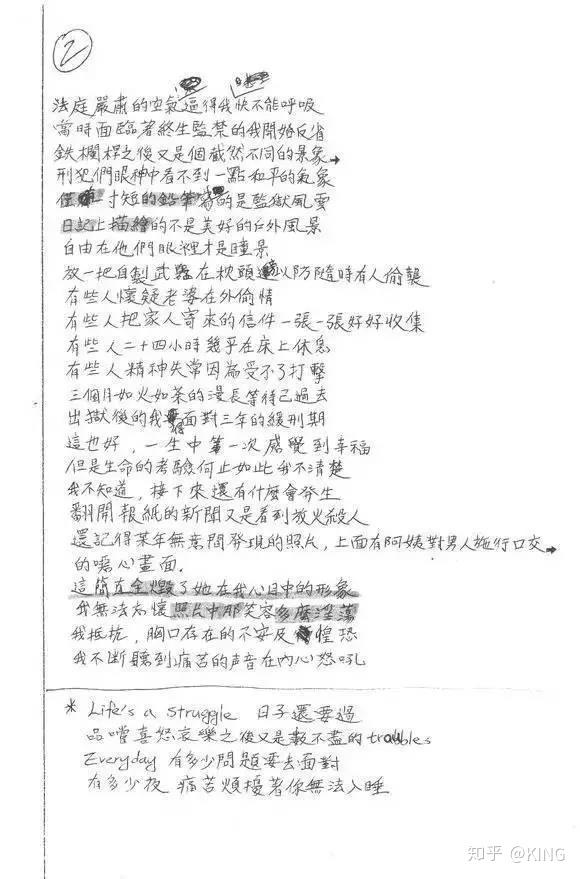 2
法庭嚴肅的空氣逼得我快不能呼吸
當時面臨著終生監禁的我開始反省
鉄欄桿之後又是個截然不同的景象→
刑犯們眼神中看不到一點和平的氣象
僅有一寸短的鉛筆寫的是監獄風雲
日記上描繪的不是美好的戶外風景
自由在他們眼裡才是睡景
放一把自製武器在枕頭邊以防隨時有人偷襲
有些人懷疑老婆在外偷情
有些人把家人寄來的信件一張一張好好收集
有些人二十四小時幾乎在床上休息
有些人精神失常因為受不了打擊
三個月如火如荼的漫長等待已過去
出獄後的我得面對三年的緩刑期
這也好，一生中第一次感覺到幸福
但是生命的考驗何止如此我不清楚
我不知道，接下來還有什麼會發生
翻開報紙的新聞又是看到放火殺人
還記得某年無意間發現的照片，上面有阿姨對男人施行口交→
的噁心畫面．
這簡直全燬了她在我心目中的形象
我無法忘懷照片中那笑容多麼淫蕩
我抵抗，胸口存在的不安及惶恐
我不斷聽到痛苦的声音在內心怒吼
* Life's a struggle 日子還要過
品嚐喜怒哀樂之後又是數不盡的troubles
Everyday 有多少問題要去面對
有多少夜 痛苦煩擾著你無法入睡
知乎 @KING